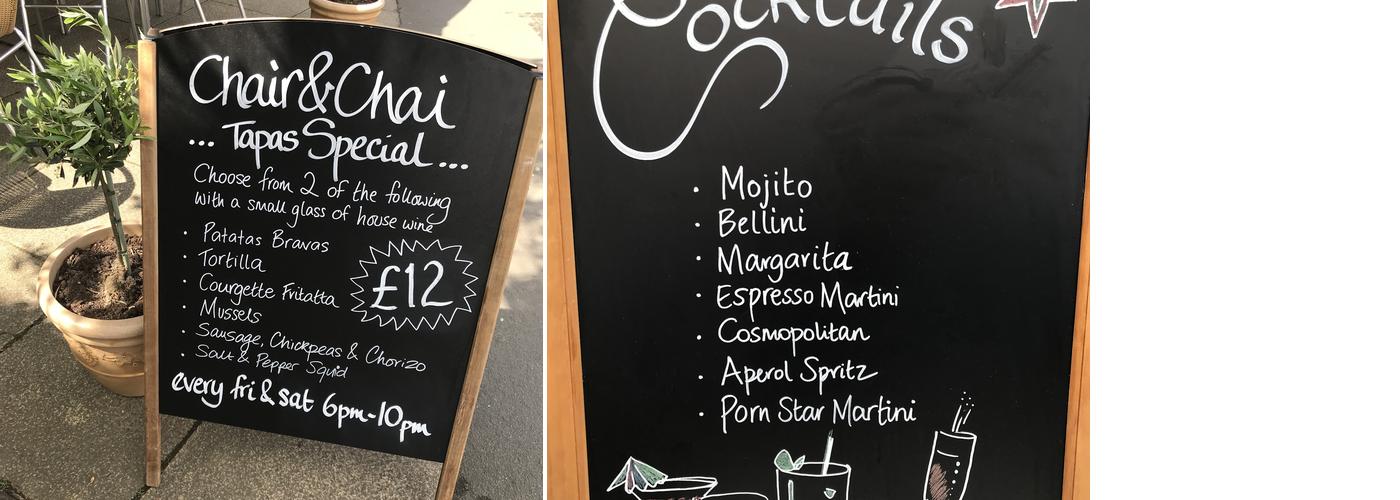 Chair & Chai
... Tapas Special ...
Choose from 2 of the following
with a small glass of house wine
• Patatas Bravas
• Tortilla
• Courgette Fritatta
• Mussels
• Sausage, Chickpeas & Chorizo
• Salt & Pepper Squid
£12
every fri & sat 6pm-10pm
Cocktails
• Mojito
• Bellini
• Margarita
• Espresso Martini
• Cosmopolitan
• Aperol Spritz
• Porn Star Martini